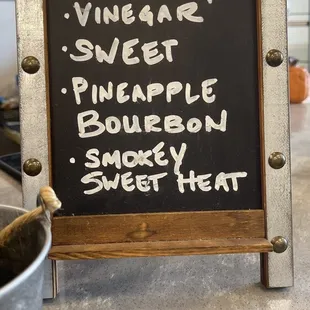 · VINEGAR
· SWEET
· PINEAPPLE
BOURBON
· SMOKEY
SWEET HEAT